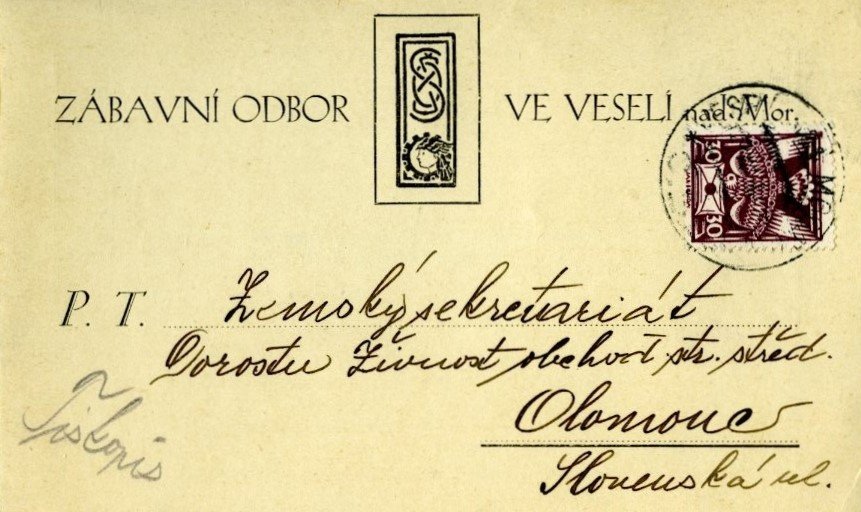 ZÁBAVNÍ ODBOR VE VESELÍ nad Mor.
30 30
P. T. Zemský sekretariát
Dorostu Živnost. obchod. str. střed.
Olomouc
Slovenská ul.
Tiskopis